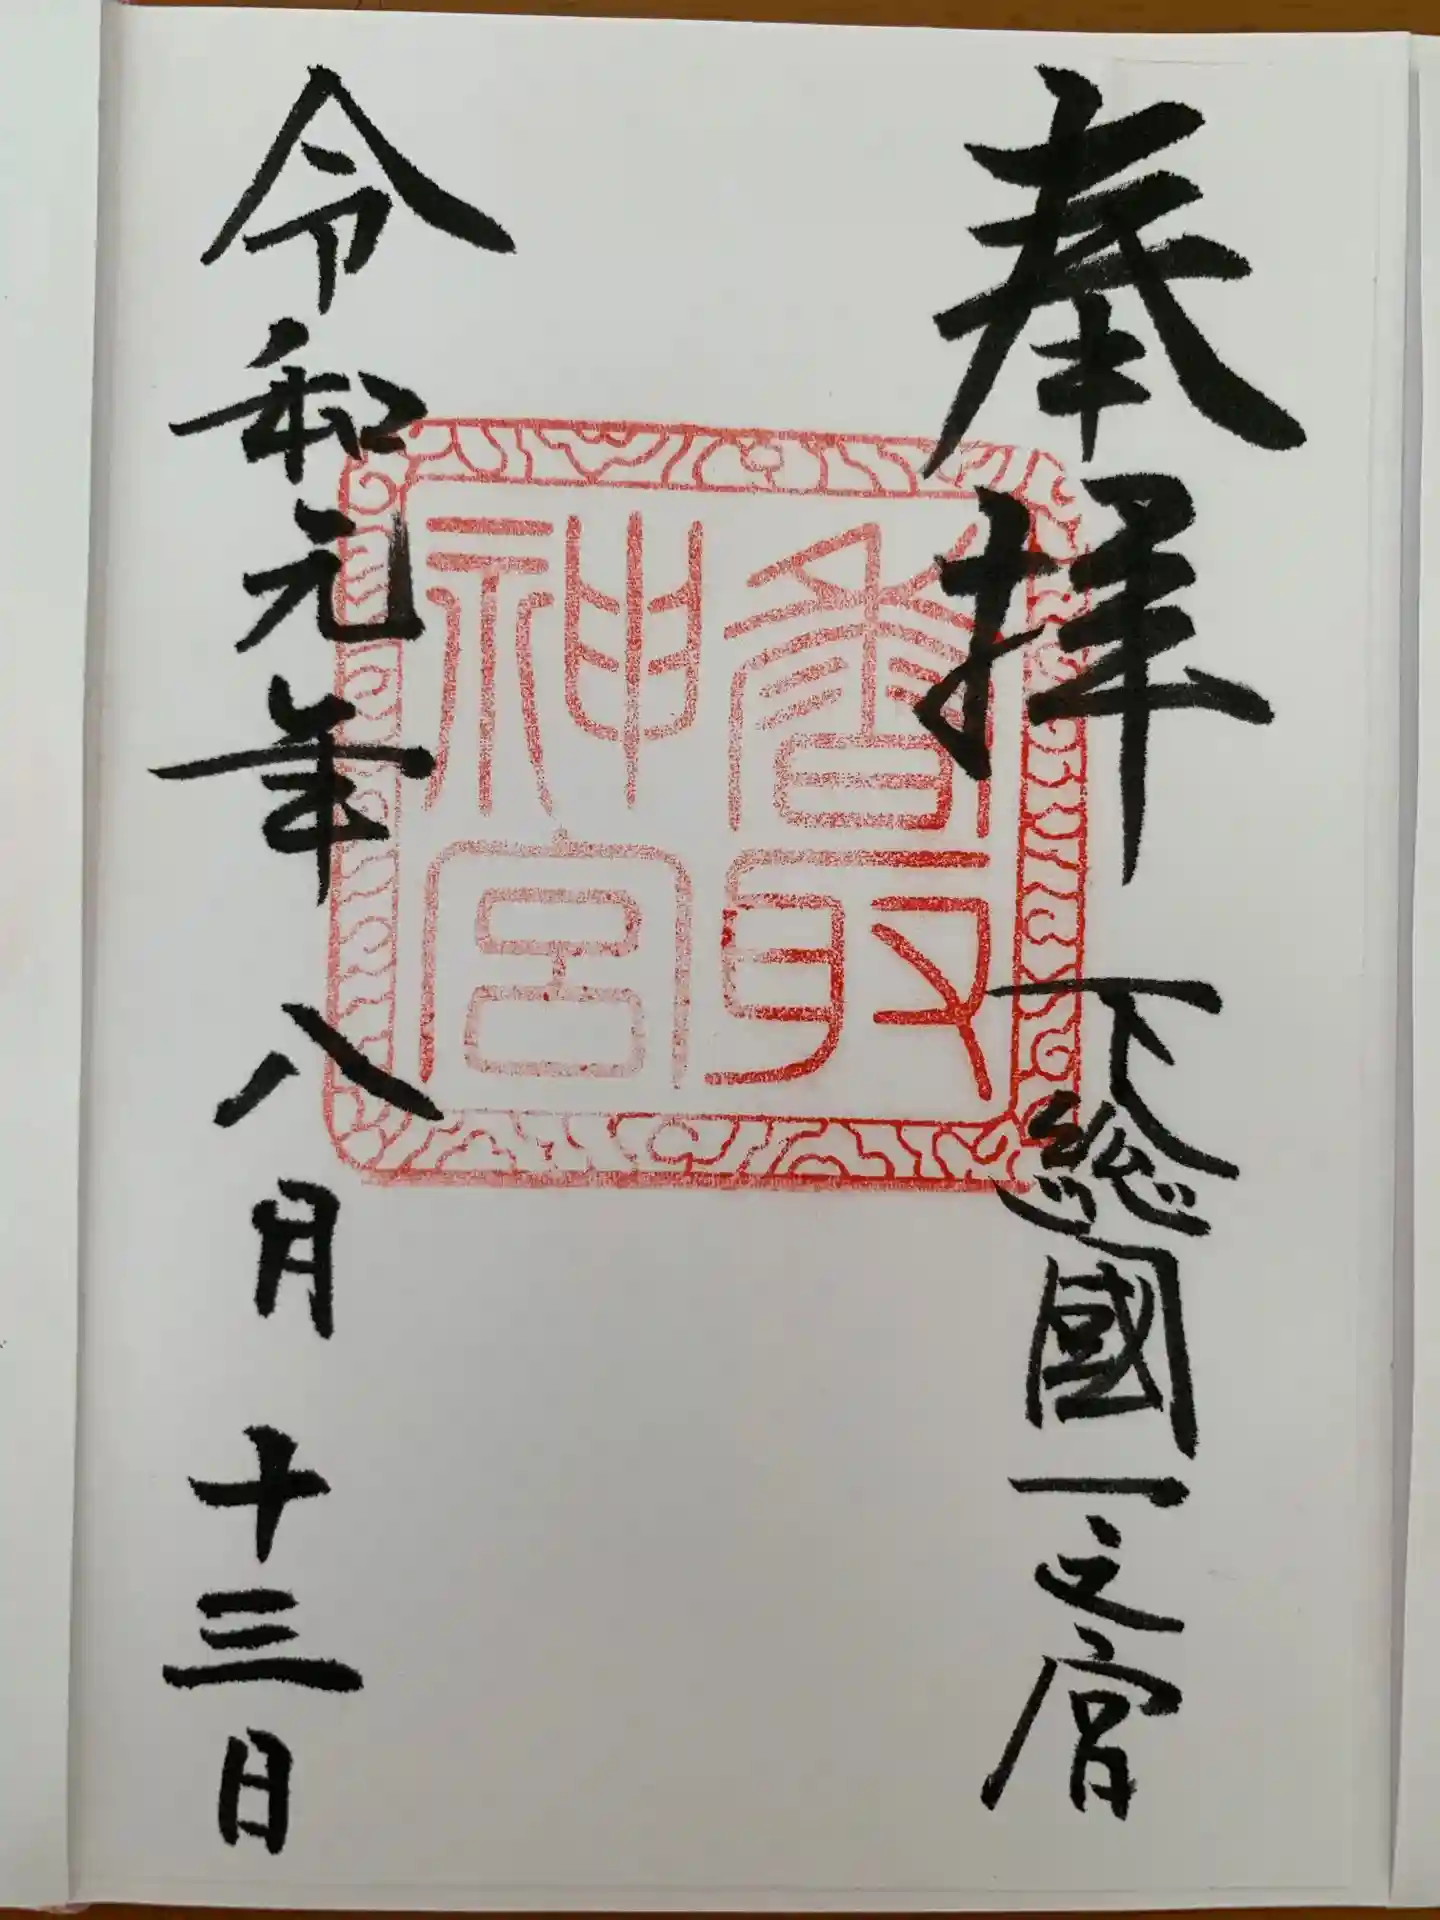 奉拝
下総國一之宮
香取
神宮
令和元年八月十三日